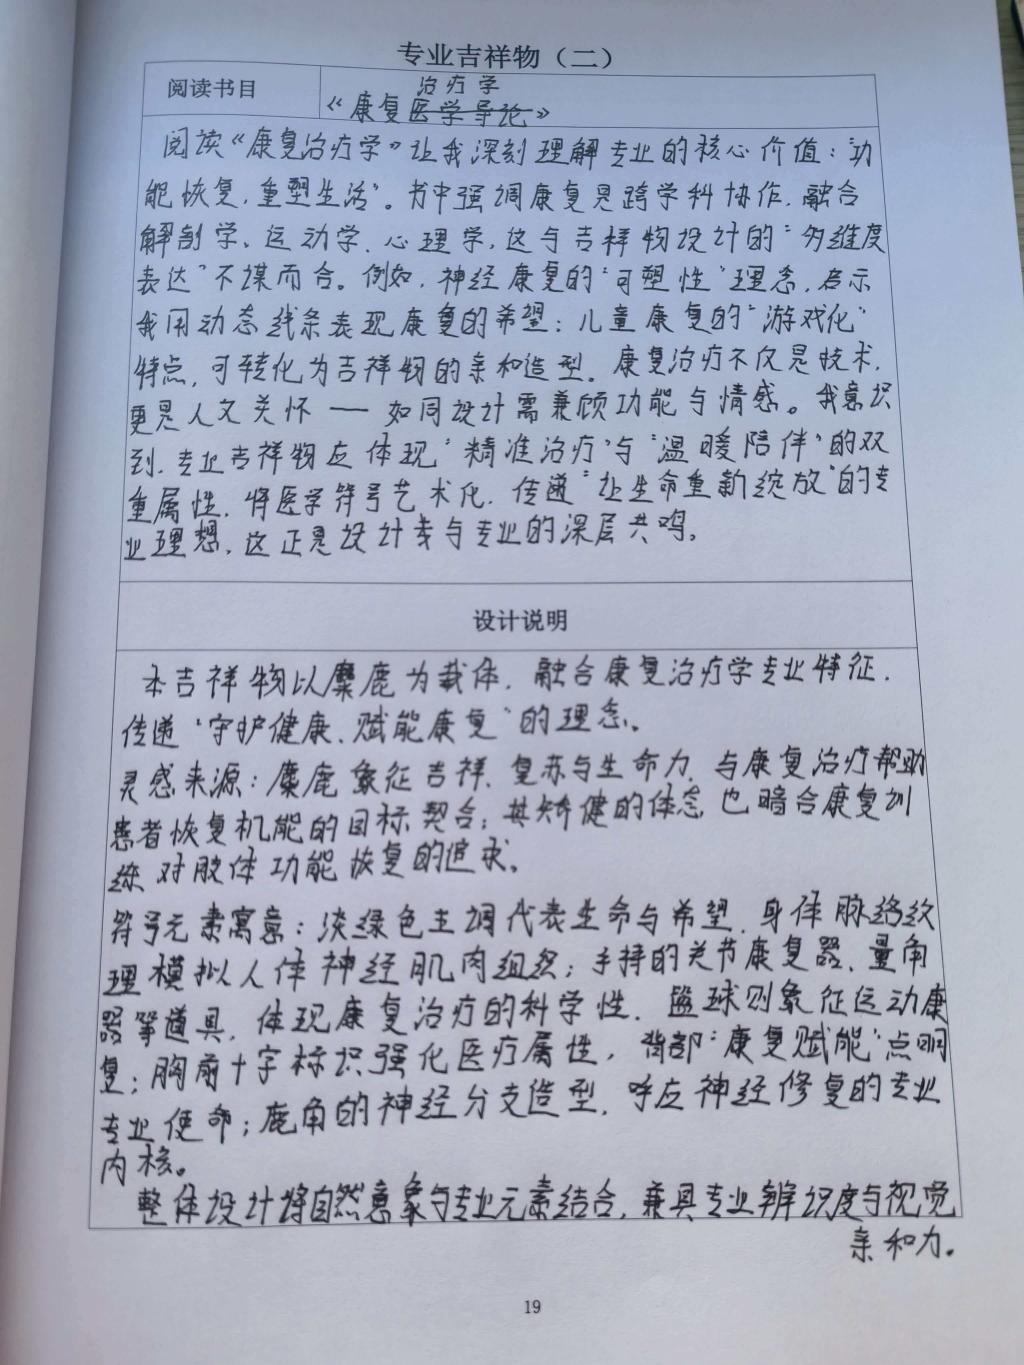 专业吉祥物（二）
阅读书目
治疗学
《康复医学导论》
阅读《康复治疗学》让我深刻理解专业的核心价值：“功
能恢复，重塑生活”。书中强调康复是跨学科协作，融合
解剖学、运动学、心理学，这与吉祥物设计的“多维度
表达”不谋而合。例如，神经康复的“可塑性”理念，启示
我用动态线条表现康复的希望；儿童康复的“游戏化”
特点，可转化为吉祥物的亲和造型。康复治疗不仅是技术，
更是人文关怀——如同设计需兼顾功能与情感。我意识
到，专业吉祥物应体现“精准治疗”与“温暖陪伴”的双
重属性，将医学符号艺术化，传递“让生命重新绽放”的专
业理想，这正是设计者与专业的深层共鸣。
设计说明
本吉祥物以麋鹿为载体，融合康复治疗学专业特征，
传递“守护健康、赋能康复”的理念。
灵感来源：麋鹿象征吉祥、复苏与生命力，与康复治疗帮助
患者恢复机能的目标契合；其矫健的体态，也暗合康复训
练对肢体功能恢复的追求。
符号元素寓意：淡绿色主调代表生命与希望，身体脉络纹
理模拟人体神经肌肉组织；手持的关节康复器、量角
器等道具，体现康复治疗的科学性，篮球则象征运动康
复；胸前十字标识强化医疗属性，背部“康复赋能”点明
专业使命；鹿角的神经分支造型，呼应神经修复的专业
内核。
整体设计将自然意象与专业元素结合，兼具专业辨识度与视觉
亲和力。
19